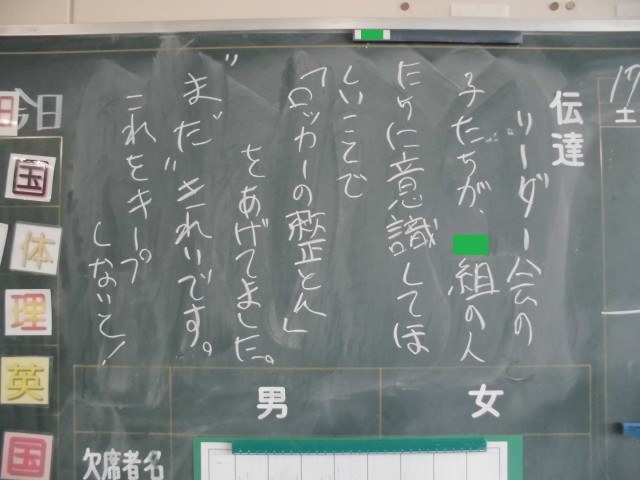 17
土
伝達
リーダー会の
子たちが、 組の人
たちに意識してほ
しいことで
「ロッカーの整とん」
をあげてました。
"まだ"きれいです。
これをキープ
しないと!
今日
国
体
理
英
国
女
男
欠席者名